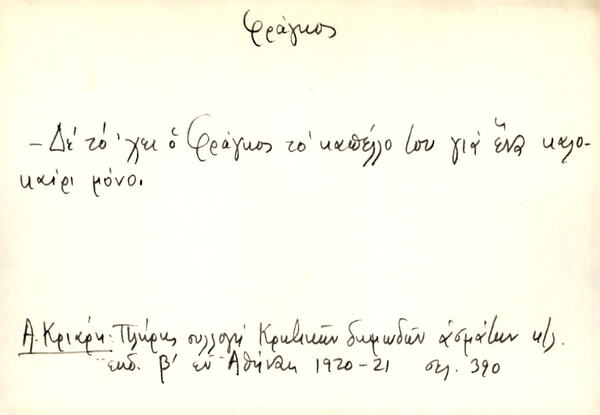 Φράγκος
- Δέ τό 'χει ὁ Φράγκος τό καπέλλο του γιά ἕνα καλο-
καίρι μόνο.
Α. Κριάρη: Πλήρης συλλογή Κρητικῶν δημωδῶν ᾀσμάτων κτλ.
ἔκδ. β' ἐν Ἀθήναις 1920-21 σελ. 390